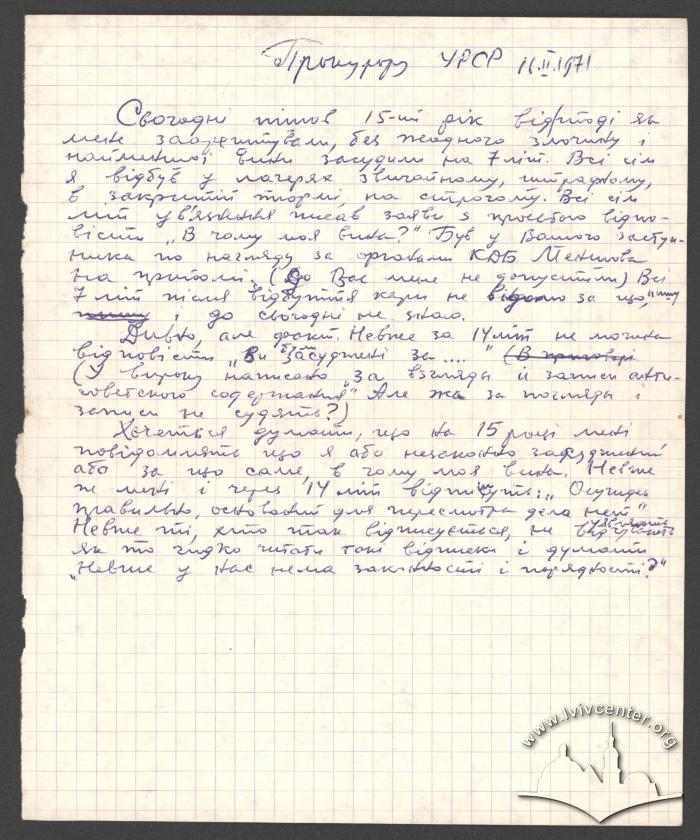 Прокурору УРСР 11.II.1971
Сьогодні пішов 15-ий рік відтоді як
мене заарештували, без жодного злочину і
найменшої вини засудили на 7 літ. Всі сім
я відбув у лагерях звичайному, штрафному,
в закритій тюрмі, на строгому. Всі сім
літ ув'язнення писав заяви з простого відпо-
вісти „В чому моя вина?" Був у Вашого заступ-
ника по нагляду за органами КДБ
на прийомі. (До Вас мене не допустили) Всі
7 літ після відбуття кари не за що,
і до сьогодні не знаю.
Дивно, але факт. Невже за 14 літ не можна
відповісти „Ви були засуджені за .... " (В приговорі
(У вироку написано „За взгляды и записи анти-
советского содержания" Але ж за погляди і
записи не судять?)
Хочеться думати, що на 15 році мені
повідомлять що я або незаконно засуджений
або за що саме, в чому моя вина. Невже
ж мені і через 14 літ відпишуть: „ Осужден
правильно, оснований для пересмотра дела нет"
Невже ті, хто так відписується, не уявляють
як то гидко читати такі відписки і думати
„Невже у нас нема законності і порядності?"
www.lvivcenter.org